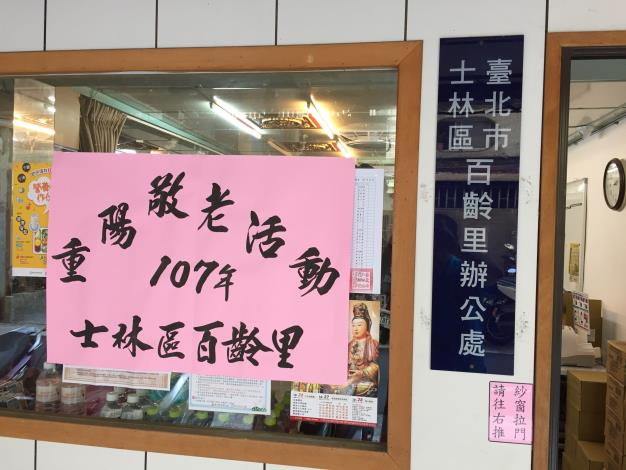 重陽敬老活動
107年
士林區百齡里
臺北市
士林區
百齡里辦公處
紗窗拉門
請往右推